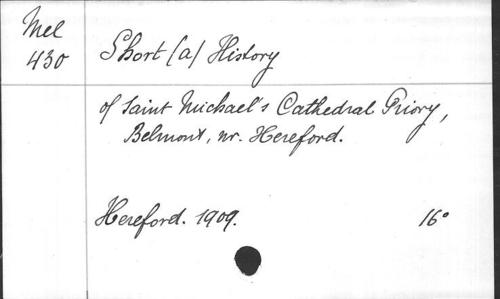 Mel
430
Short (a) History
of Saint Michael's Cathedral Priory,
Belmont, nr. Hereford.
Hereford. 1909. 16°